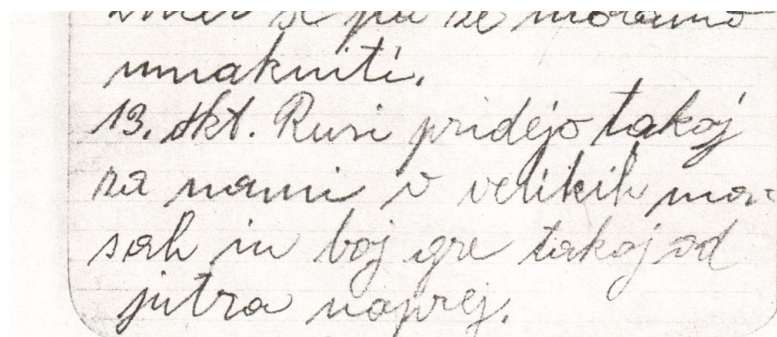 se pa se moramo
umakniti.
13. okt. Rusi pridejo takoj
za nami v velikih ma-
sah in boj gre takoj od
jutra naprej.